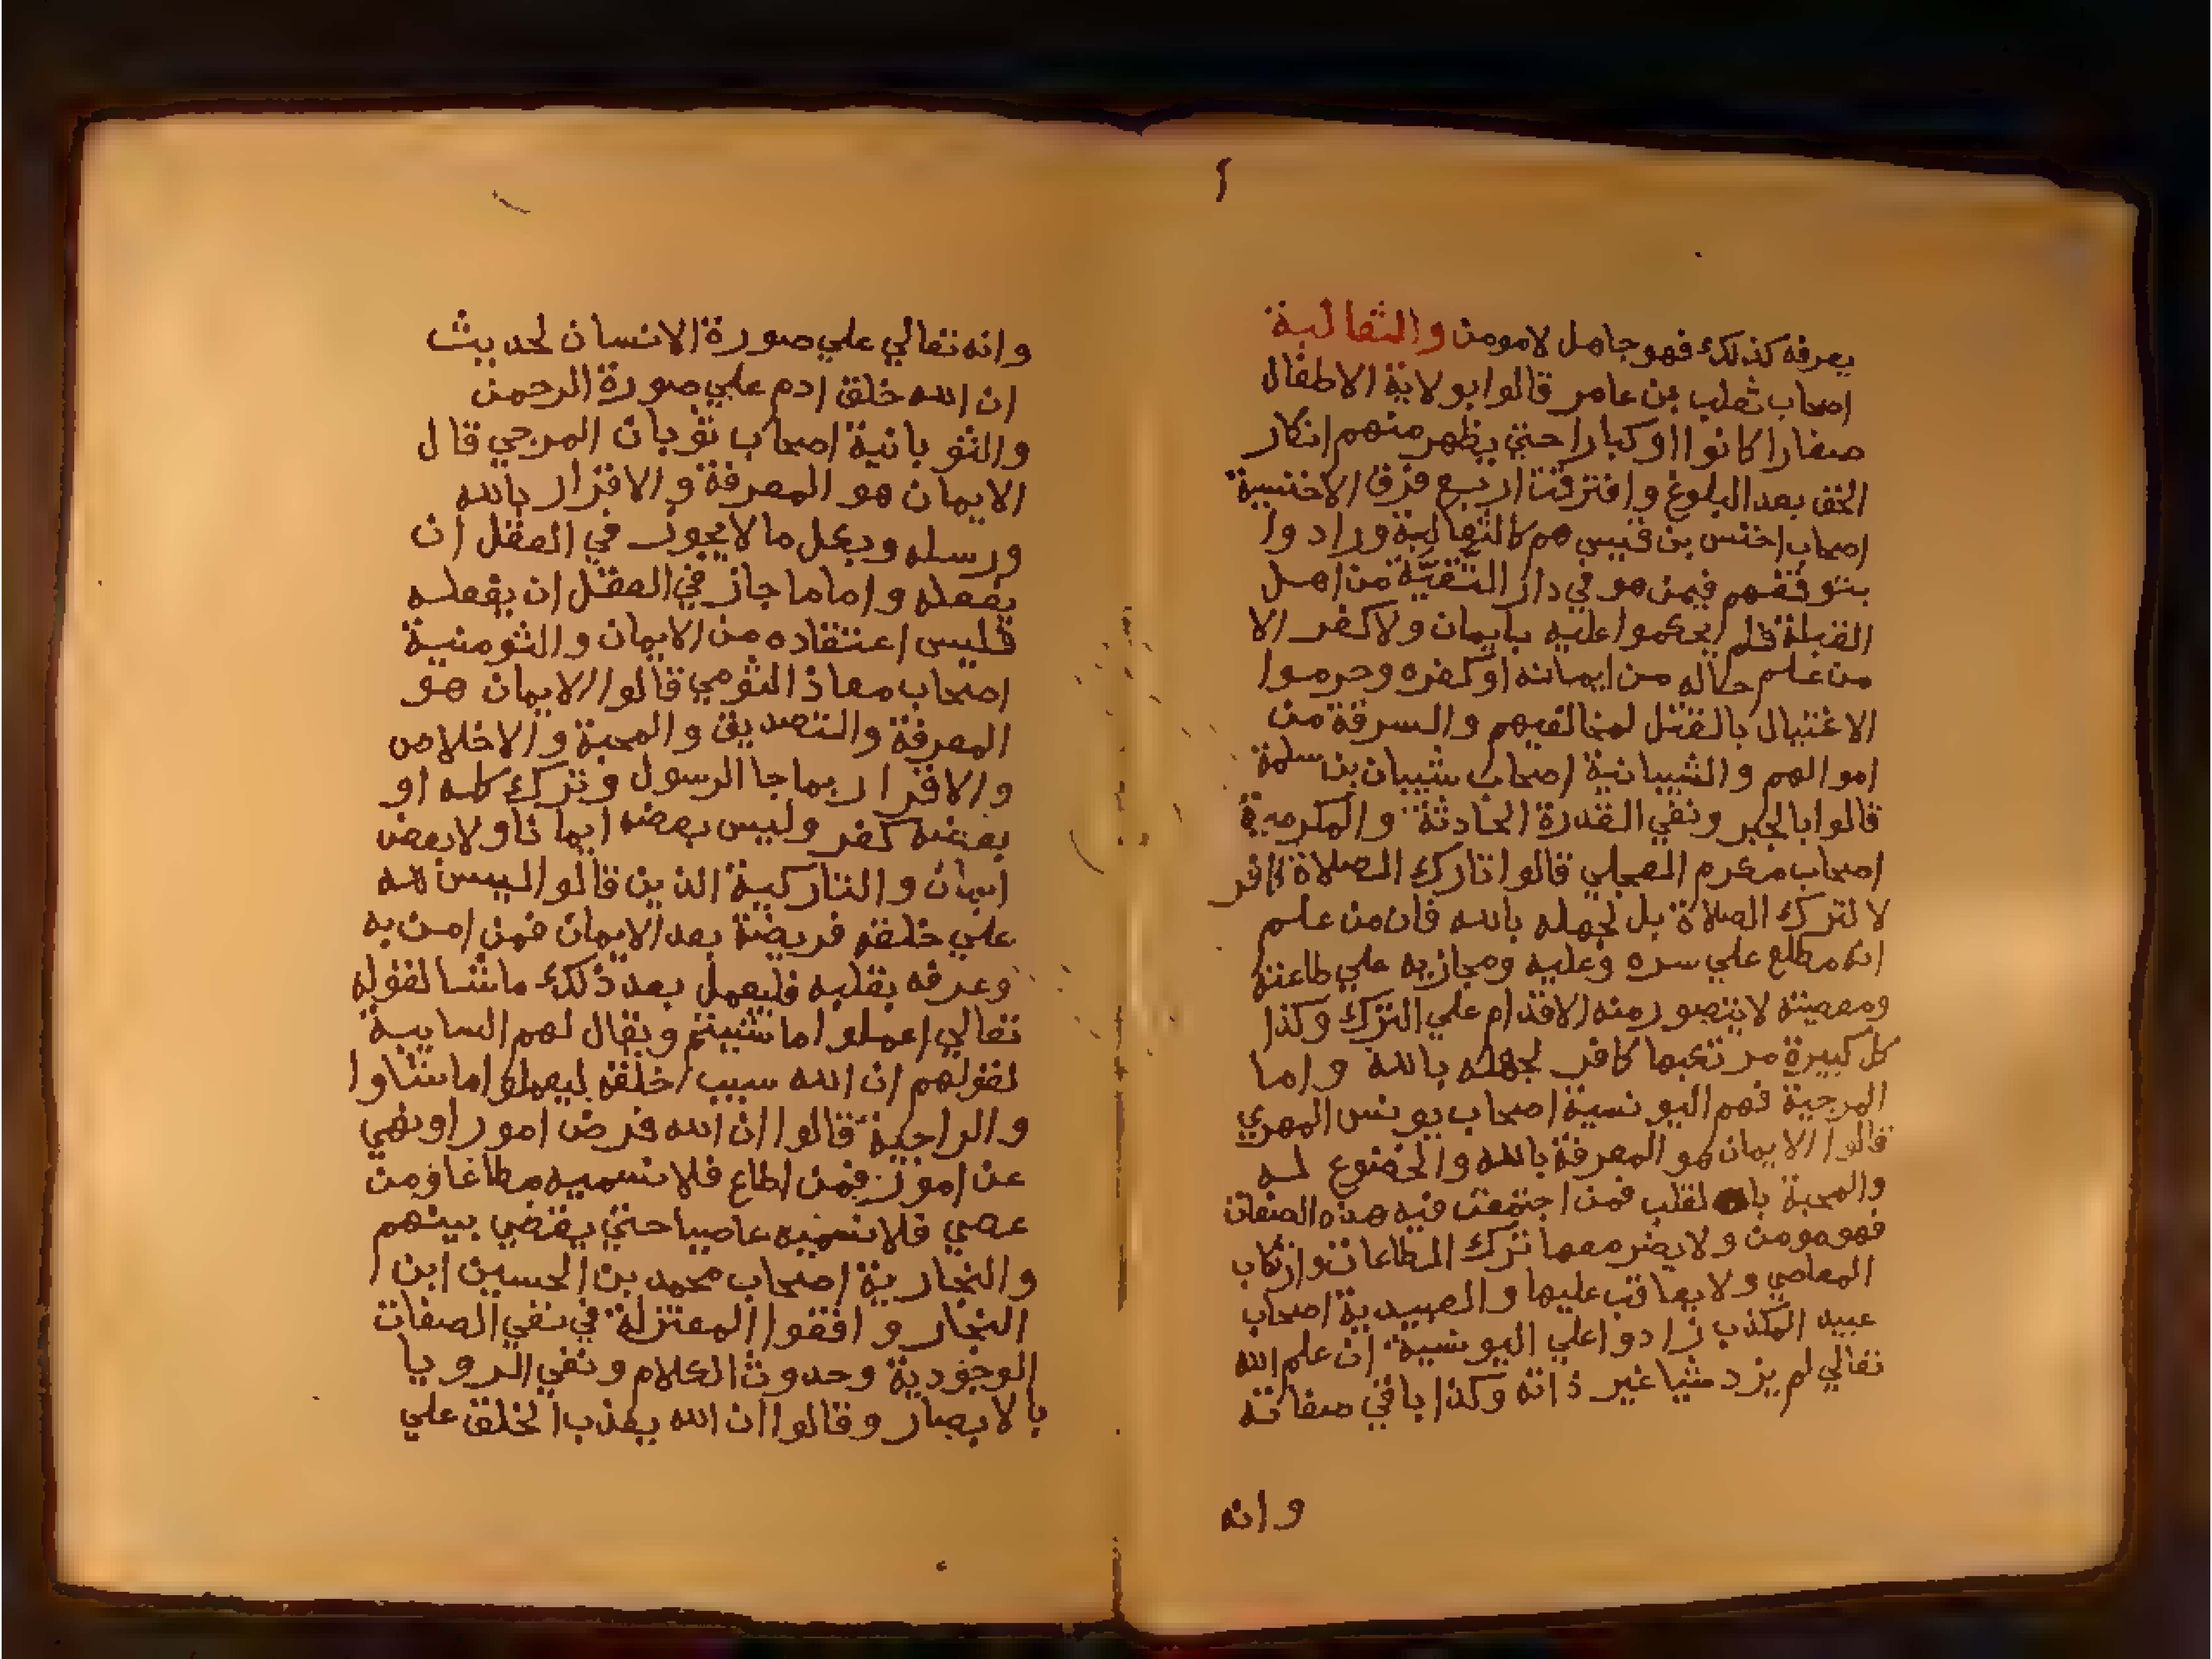 يعرفه كذلك فهو جاهل لا مومن والثعالبة
اصحاب ثعلب بن عامر قالوا بولاية الاطفال
صغارا كانوا او كبارا حتي يظهر منهم انكار
الحق بعد البلوغ وافترقت اربع فرق الاخنسية
اصحاب اخنس بن قيس هم كالثعالبة وزادوا
بتوقفهم فيمن هو في دار التقية من اهل
القبلة فلم يحكموا عليه بايمان ولا كفر الا
من علم حاله من ايمانه او كفره وحرموا
الاغتيال بالقتل لمخالفيهم والسرقة من
اموالهم والشيبانية اصحاب شيبان بن سلمة
قالوا بالجبر ونفي القدرة الحادثة والمكرمية
اصحاب مكرم العجلي قالوا تارك الصلاة كافر
لا لترك الصلاة بل لجهله بالله فان من علم
انه مطلع علي سره وعليه ومجازيه علي طاعته
ومعصيته لا يتصور منه الاقدام علي الترك وكذا
كل كبيرة مرتكبها كافر لجهله بالله واما
المرجية فهم اليونسية اصحاب يونس المهري
قالوا الايمان هو المعرفة بالله والخضوع له
والمحبة بالقلب فمن اجتمعت فيه هذه الصفات
فهو مومن ولا يضر معها ترك الطاعات وارتكاب
المعاصي ولا يعاقب عليها والعبيدية اصحاب
عبيد المكذب زادوا علي اليونسية ان علم الله
تعالي لم يزد شيا غير ذاته وكذا باقي صفاته
وانه
وانه تعالي علي صورة الانسان لحديث
ان الله خلق ادم علي صورة الرحمن
والثوبانية اصحاب ثوبان المرجي قال
الايمان هو المعرفة والاقرار بالله
ورسله وبكل ما لا يجوز في العقل ان
يفعله واما ما جاز في العقل ان يفعله
فليس اعتقاده من الايمان والثومنية
اصحاب معاذ الثومي قالوا الايمان هو
المعرفة والتصديق والمحبة والاخلاص
والاقرار بما جا الرسول وترك كله او
بعضه كفر وليس بعضه ايمانا ولا بعض
ايمان والتاركية الذين قالوا ليس لله
علي خلقه فريضة بعد الايمان فمن امن به
وعرفه بقلبه فليعمل بعد ذلك ما شا لقوله
تعالي اعملوا ما شيتم ويقال لهم السايبة
لقولهم ان الله سيب خلقه ليعملوا ما شاوا
والراجية قالوا ان الله فرض امورا ونهي
عن امور فمن اطاع فلا نسميه مطاعا ومن
عصي فلا نسميه عاصيا حتي يقضي بينهم
والنجارية اصحاب محمد بن الحسين ابن ا
النجار وافقوا المعتزلة في نفي الصفات
الوجودية وحدوث الكلام ونفي الرويا
بالابصار وقالوا ان الله يعذب الخلق علي